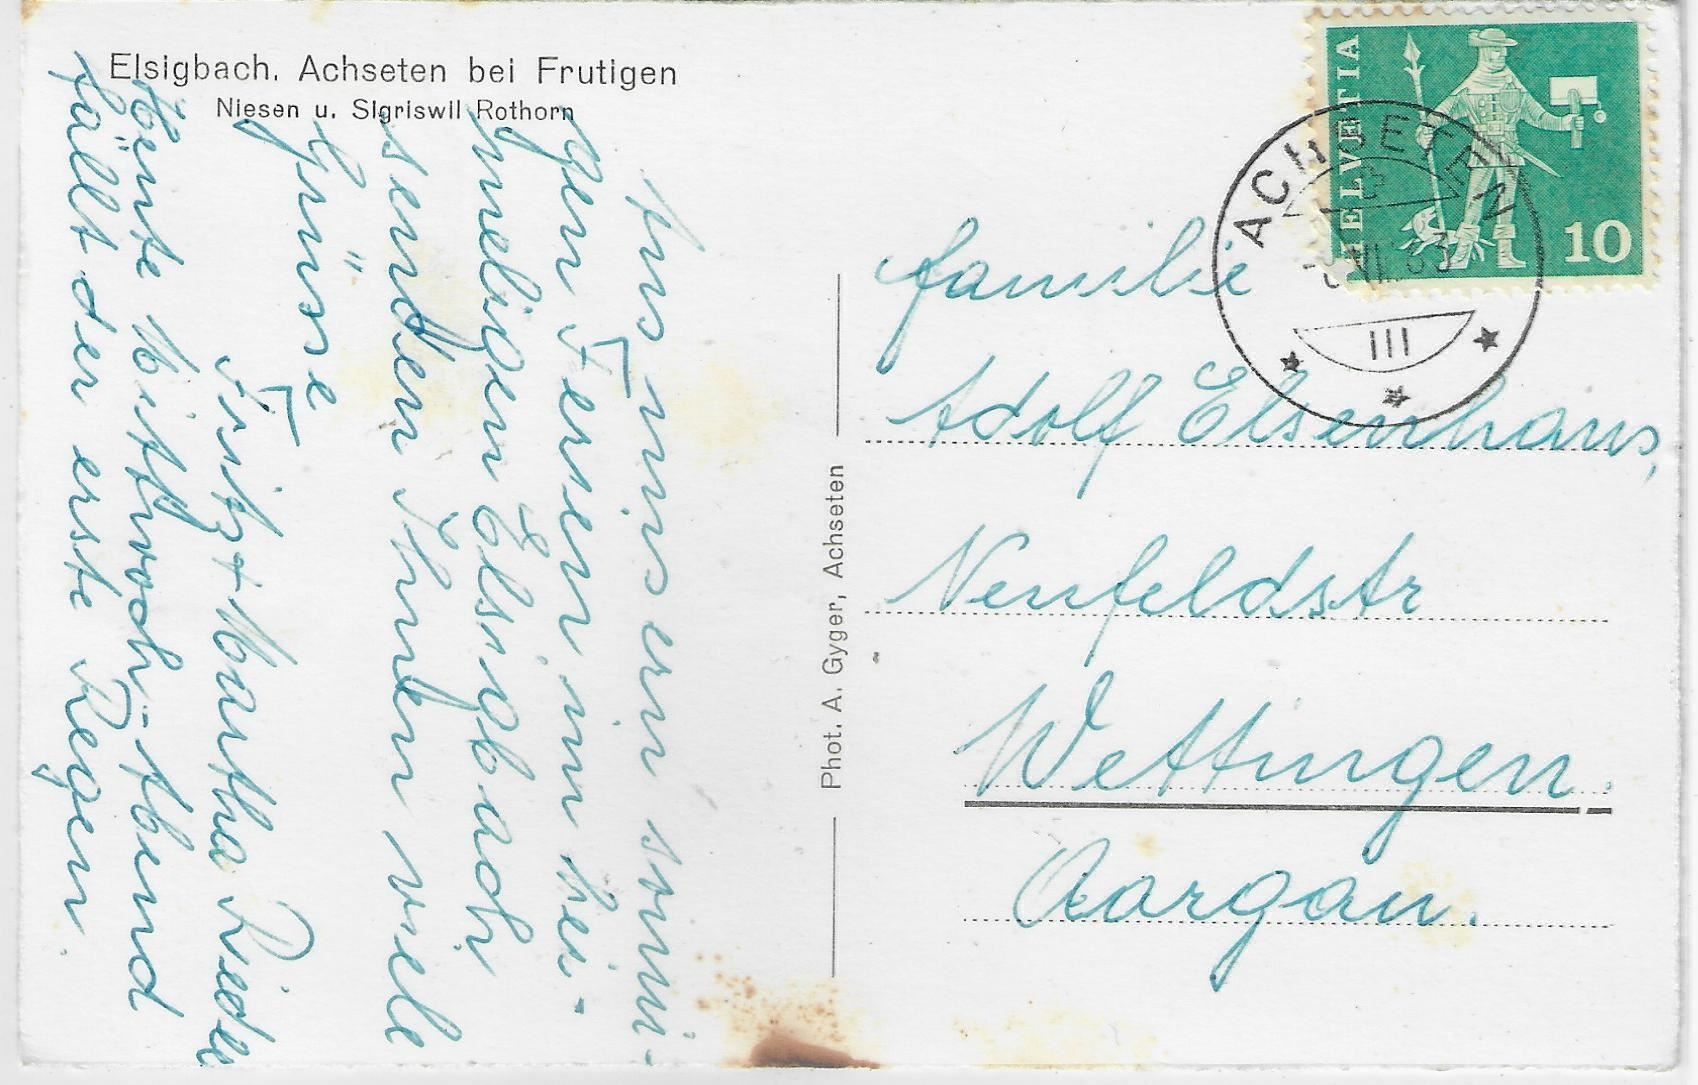 Elsigbach. Achseten bei Frutigen
Niesen u. Sigriswil Rothorn
Aus unsern sonni-
gen Ferien im hei-
meligen Elsigbach
senden Ihnen viele
Grüsse
Fritz + Martha Rieder
Heute Mittwoch-Abend
fällt der erste Regen.
Phot. A. Gyger, Achseten
HELVETIA
10
ACHSETEN
III
Familie
Adolf Elsenhans,
Neufeldstr
Wettingen.
Aargau.